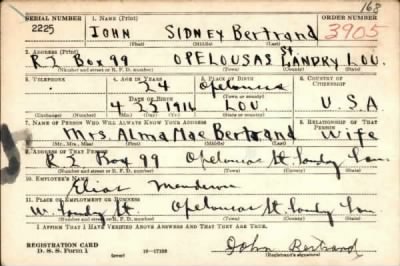 168
SERIAL NUMBER 1. NAME (Print) ORDER NUMBER
2225 JOHN SIDNEY Bertrand 3905
(First) (Middle) (Last)
2. ADDRESS (Print)
R1 Box 99 OPELOUSAS St LANDRY LOU.
(Number and street or R. F. D. number) (Town) (County) (State)
3. TELEPHONE 4. AGE IN YEARS 5. PLACE OF BIRTH 6. COUNTRY OF CITIZENSHIP
24 Opelousas
DATE OF BIRTH (Town or county)
4 1916 LOU. U.S.A
(Exchange) (No.) (Mo.) (Day) (Yr.) (State or country)
7. NAME OF PERSON WHO WILL ALWAYS KNOW YOUR ADDRESS 8. RELATIONSHIP OF THAT PERSON
Mrs. Alma Mae Bertrand Wife
(Mr., Mrs., Miss) (First) (Middle) (Last)
9. ADDRESS OF THAT PERSON
R1 Box 99 Opelousas St Landry Lou
(Number and street or R. F. D. number) (Town) (County) (State)
10. EMPLOYER'S NAME
Elias
11. PLACE OF EMPLOYMENT OR BUSINESS
W. Landry St Opelousas St Landry Lou
(Number and street or R. F. D. number) (Town) (County) (State)
I AFFIRM THAT I HAVE VERIFIED ABOVE ANSWERS AND THAT THEY ARE TRUE.
REGISTRATION CARD
D. S. S. Form 1 (over) John Bertrand
(Registrant's signature)